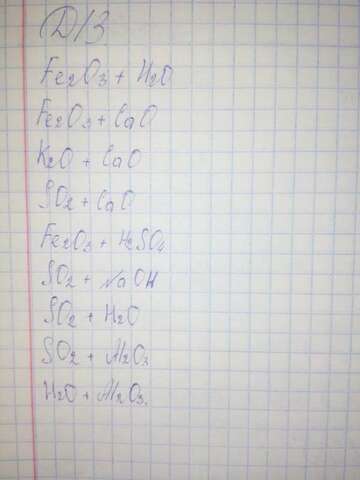 Д/З
Fe₂O₃ + H₂O
Fe₂O₃ + CaO
K₂O + CaO
SO₂ + CaO
Fe₂O₃ + H₂SO₄
SO₂ + NaOH
SO₂ + H₂O
SO₂ + Al₂O₃
H₂O + Al₂O₃.